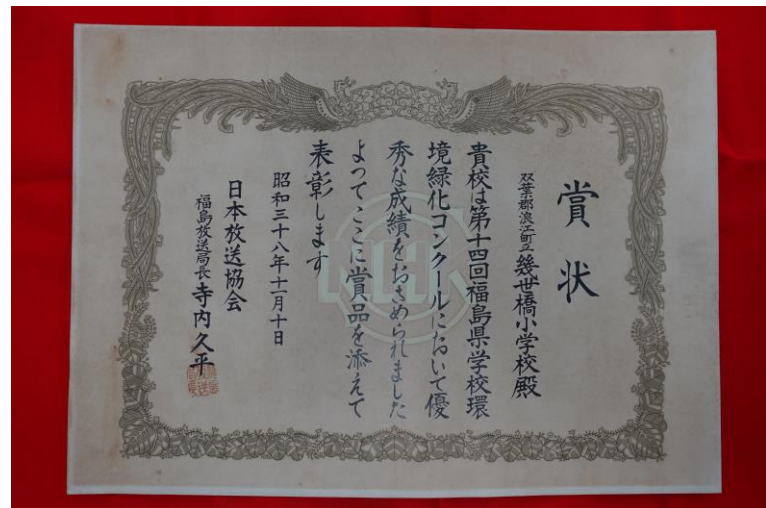 賞状
双葉郡浪江町立幾世橋小学校殿
貴校は第十四回福島県学校環
境緑化コンクールにおいて優
秀な成績をおさめられました
よってここに賞品を添えて
表彰します
昭和三十八年十一月十日
日本放送協会
福島放送局長寺内久平
NHK